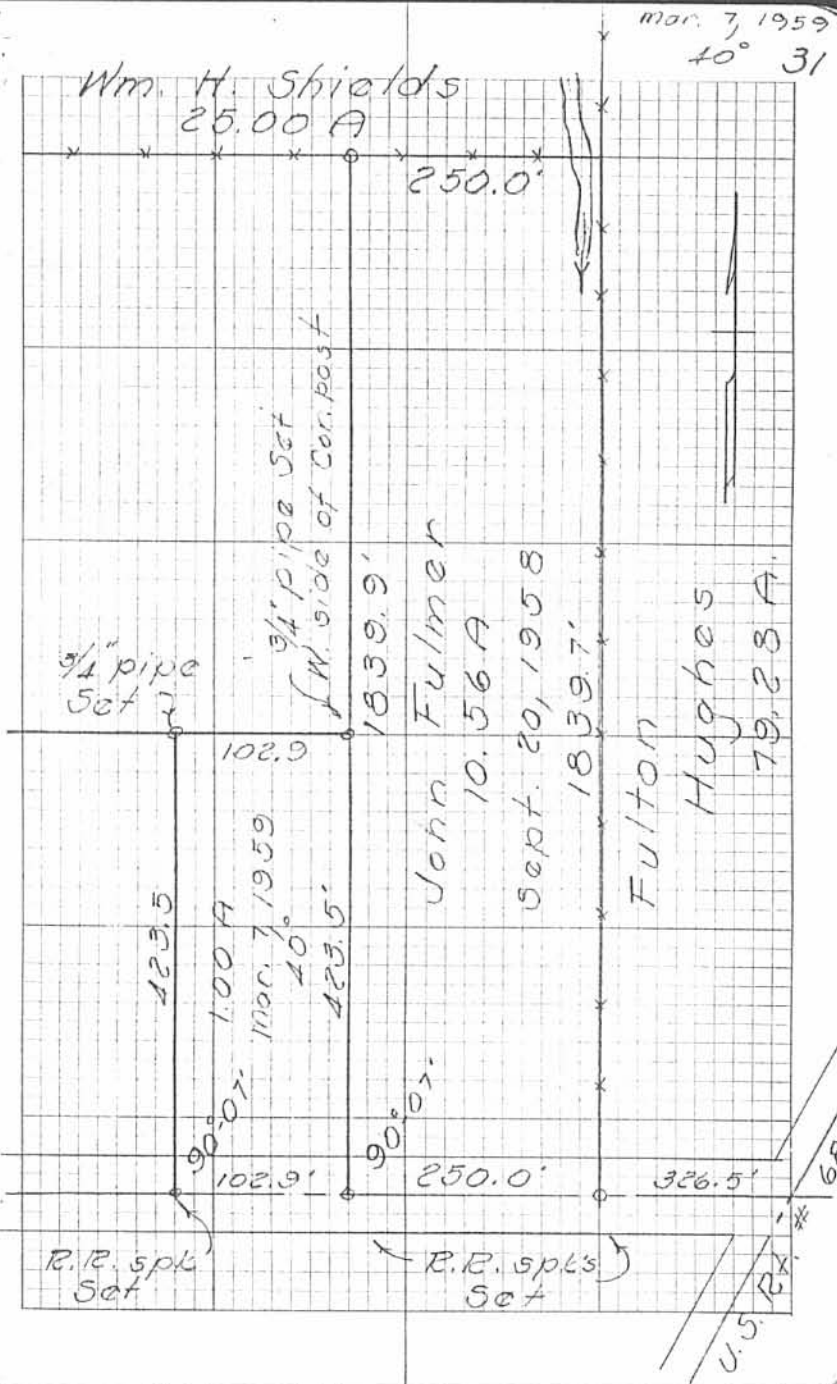 mar. 7, 1959
40° 31
Wm. H. Shields
25.00 A
250.0'
3/4" pipe Set
W. side of Cor. post
3/4" pipe
Set
102.9
1839.9'
John Fulmer
10.56 A
Sept. 20, 1958
1839.7'
Fulton
Hughes
79.28 A.
423.5
1.00 A
mar. 7, 1959
40°
423.5'
90°-07'
90°-07'
102.9'
250.0'
326.5'
R.R. spk
Set
R.R. spk's
Set
U.S. Rt.